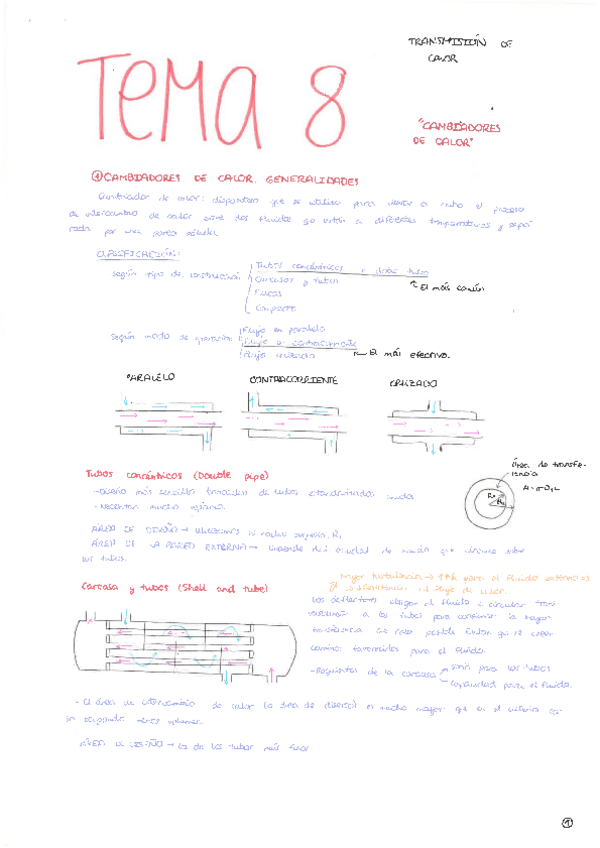 TRANSMISIÓN DE
CALOR
TEMA 8
"CAMBIADORES
DE CALOR"
① CAMBIADORES DE CALOR. GENERALIDADES
Cambiador de calor: dispositivo que se utiliza para llevar a cabo el proceso
de intercambio de calor entre dos fluidos que están a diferentes temperaturas y sepa-
rados por una pared sólida.
CLASIFICACIÓN:
Según tipo de construcción
Tubos concéntricos o doble tubo
Carcasa y tubos
El más común
Placas
Compacto
Según modo de operación
Flujo en paralelo
Flujo a contracorriente
Flujo cruzado
El más efectivo.
PARALELO
CONTRACORRIENTE
CRUZADO
Tubos concéntricos (Double pipe)
Área de transfe-
rencia
- Diseño más sencillo de tubos
- Necesitan mucho espacio.
ÁREA DE DISEÑO →
ÁREA DE LA PARED EXTERNA →
los tubos.
Carcasa y tubos (Shell and tube)
Mayor turbulencia → para el fluido externo
el flujo de calor.
Los deflectores obligan al fluido a circular trans-
versalmente a los tubos para conseguir la mayor
transferencia de calor posible. Evitan que se creen
caminos favorables para el fluido.
- Requisitos de la carcasa
para los tubos
capacidad para el fluido.
- El área de intercambio de calor (o área de diseño) es mucho mayor que en el anterior ca-
so ocupando menos volumen.
ÁREA DE DISEÑO → la de los tubos
①